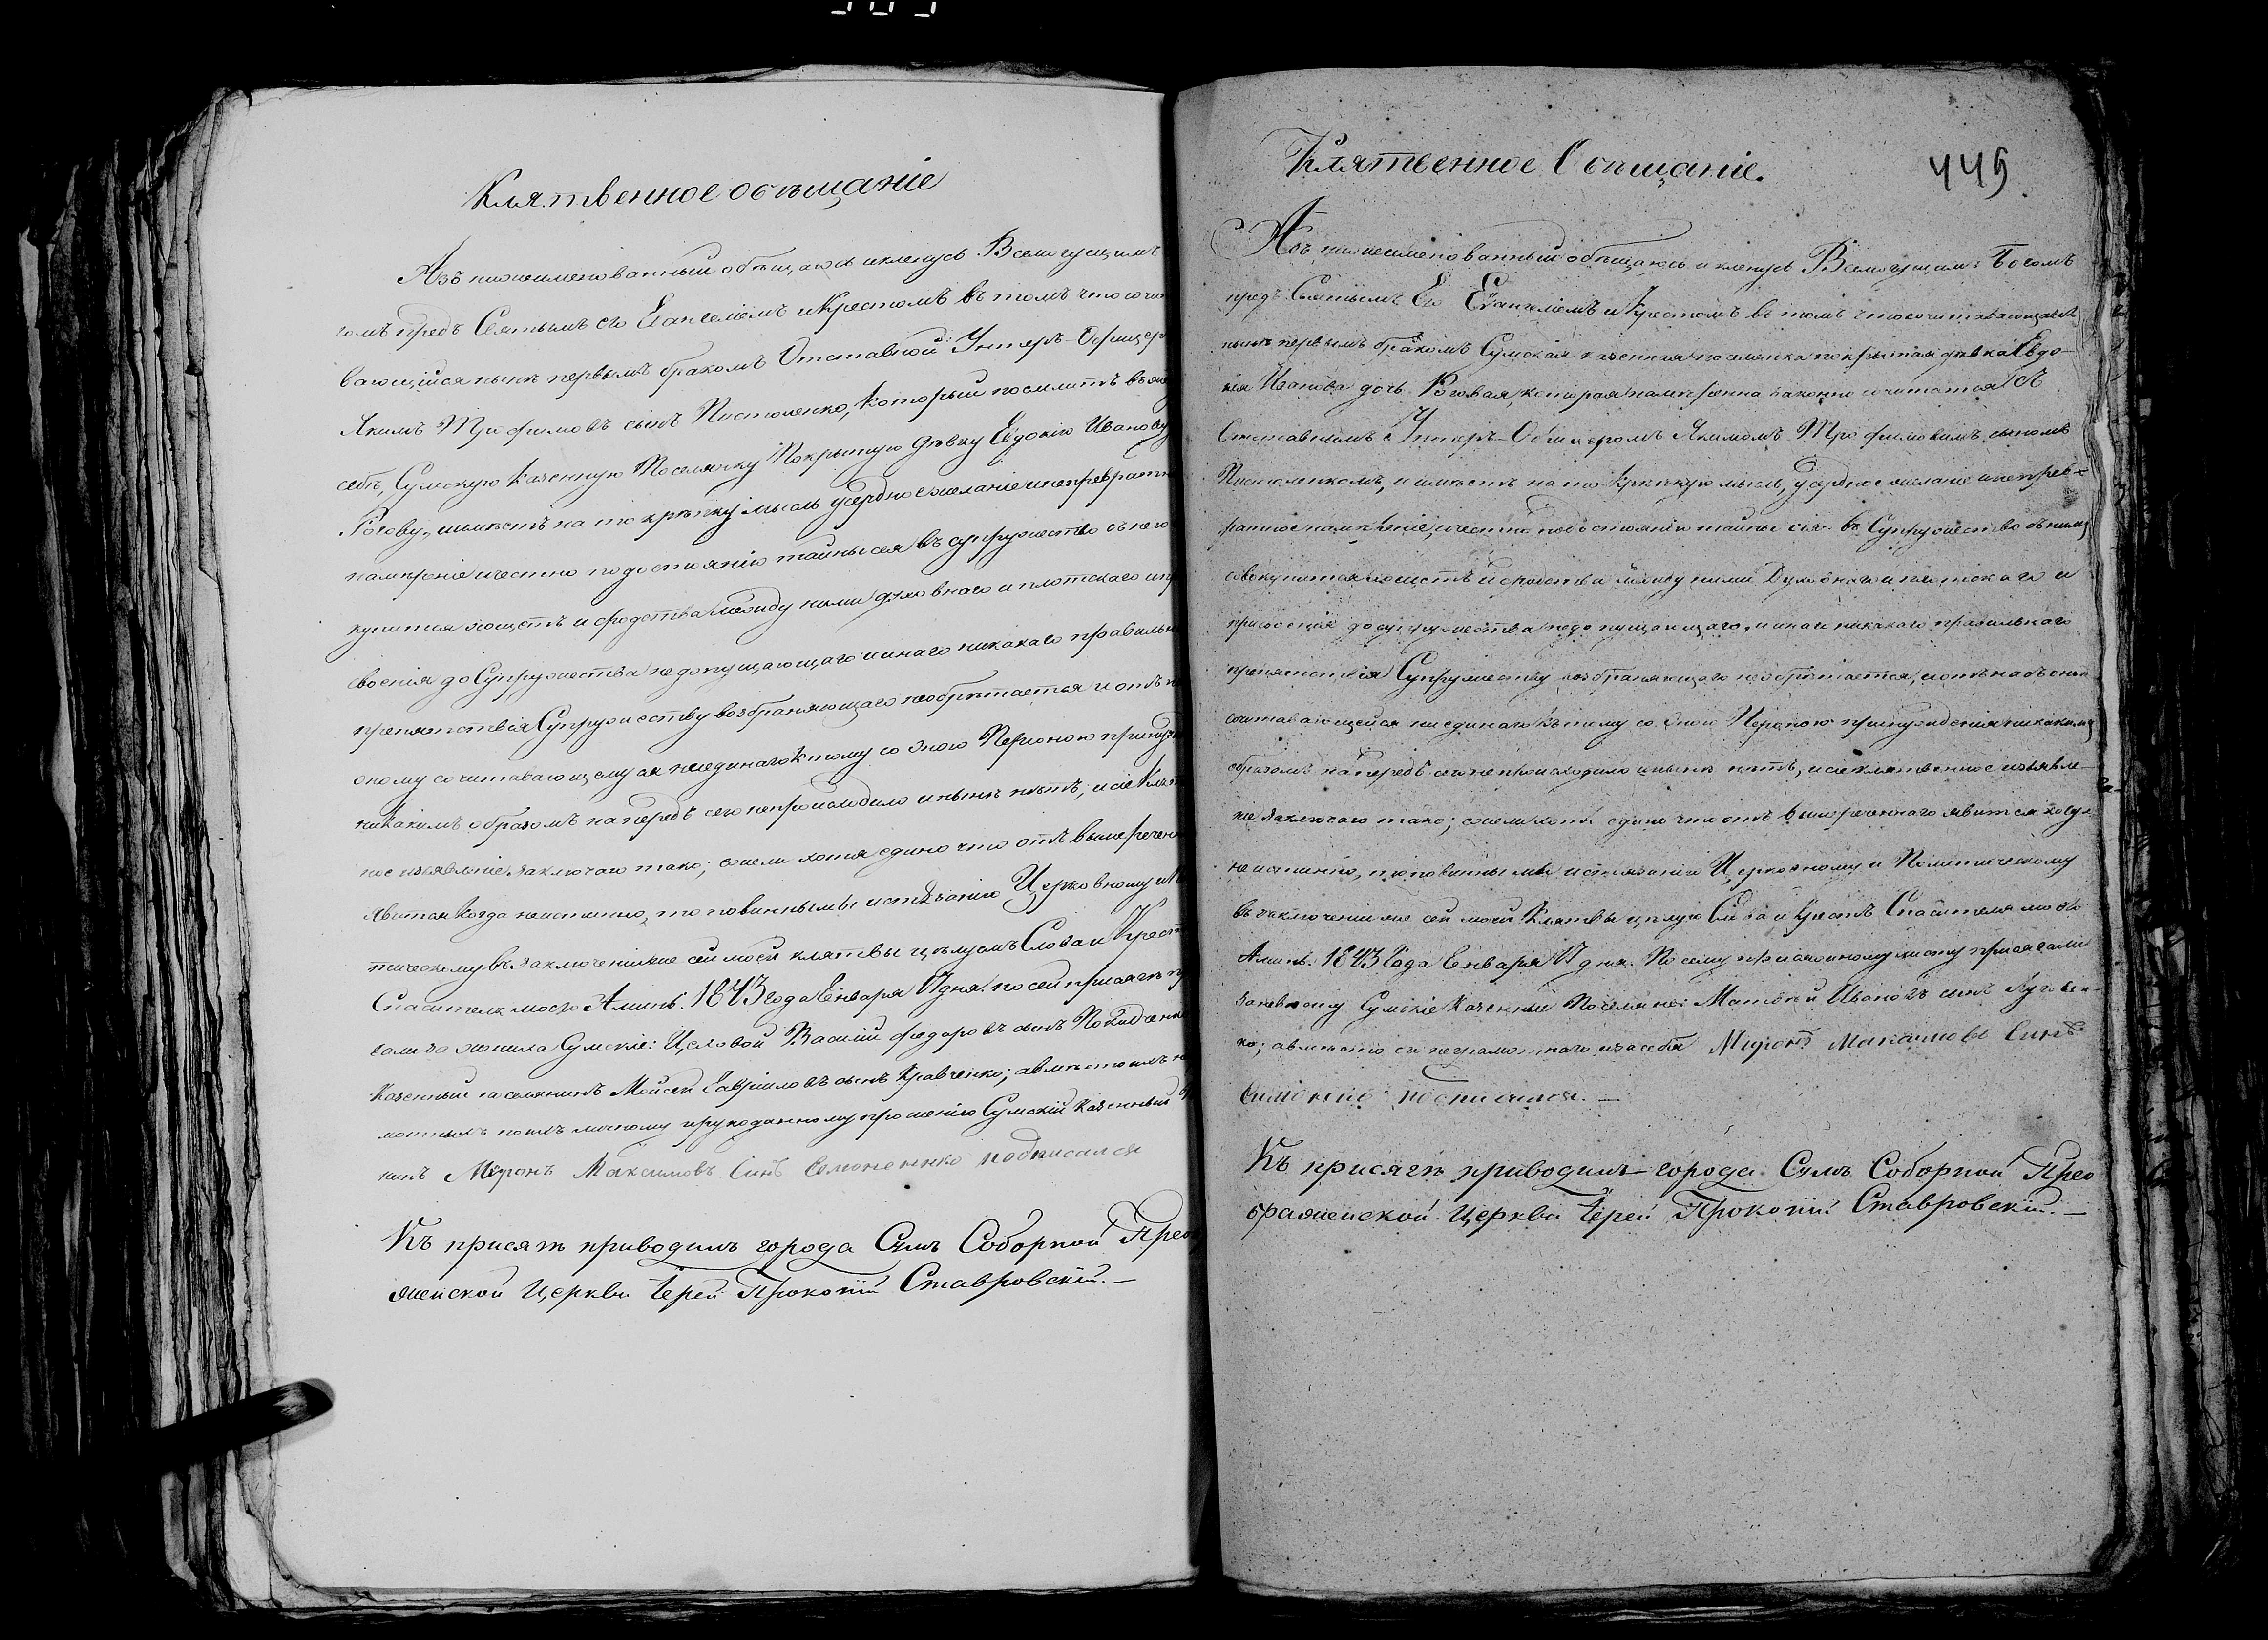 Клятвенное обѣщаніе
Азъ нижеименованный обѣщаюсь и кленусь Всемогущимъ
гомъ предъ Святымъ его Евангеліемъ и Крестомъ въ томъ что сочи
вающійся нынѣ первымъ бракомъ Отставной Унтеръ-Офицер
Якимъ Трофимовъ сынъ Пистоленко, который посилитъ въ
себѣ, Сумскую казенную Поселянку Покрытую дѣвку Евдокію Иванову
имѣетъ на то крѣпку мысль усердное желаніе и непревратн
намѣреніе и честно по достоянію тайны сея въ супружество съ нею
купится жощетъ и сродства между ними духовнаго и плотскаго и
своенія до Супружества недопущающаго и инаго никакаго правильн
препятствія Супружеству возбраняющаго необрѣтается и отъ
оному сочитавающемуся неединаго к тому со оною Персоною принуж
никакимъ образомъ напередъ сего непроисходило и нынѣ нѣтъ; и сіе Клят
ное изъявленіе заключаю тако; ежели хотя едино что отъ вышеречен
явится когда неистинно, то повиннымы истязанію Церковному и
тическому въ заключеніи же сей моей клятвы цѣлуемъ Слова и Крест
Спасителя моего Аминь. 1843 года Енваря 17 дня. по сей присягѣ пр
гали за жениха Сумскіе: Цеховой Василій Федоровъ сынъ
Казенный поселянинъ Мойсей Гавриловъ сынъ Кравченко; а вмѣсто ихъ
мотныхъ по ихъ личному и рукоданному прошенію Сумскій казенный
нинъ Миронъ Максимовъ Синъ Семоненко подписался
Къ присягѣ приводилъ города Сумъ Соборной Прео
женской Церкви Іерей Прокопій Ставровскій. —
Клятвенное Обѣщаніе.
445
Азъ нижеименованный обѣщаюсь и кленусь Всемогущимъ Богомъ
предъ Святымъ Его Евангеліемъ и Крестомъ въ томъ что сочитавающаяся
нынѣ первымъ бракомъ Сумская казенная поселянка покрытая дѣвка Евдо-
кія Иванова дочь которая намѣренна законно сочитатся съ
Отставнымъ Унтеръ-Офицеромъ Якимомъ Трофимовимъ сыномъ
Пистоленкомъ, и имѣетъ на то крѣпкую мысль, усердное желаніе и непрев-
ратное намѣреніе, и честно по достоянію тайны сея въ Супружество съ нимъ
совокупится жощетъ и сродства между ними Духовнаго и плотскаго и
присвоенія до супружества недопущающаго, и инаго никакаго правильнаго
препятствія Супружеству возбраняющаго необрѣтается, и отъ насъ оной
сочитавающейся ниединаго къ тому со оною Персоною принужденія никакимъ
образомъ напередъ сего непроисходило и нынѣ нѣтъ, и сіе клятвенное изъявле-
ніе заключаю тако; ежели хотя едино что отъ вышереченнаго явится когда
неистинно, то повинны мы истязанію Церковному и Политическому
въ заключеніи же сей моей Клятвы цѣлую Слова и Крестъ Спасителя моего
Аминь. 1843 Года Енваря 17 дня. По сему присяжному листу присягали
за невѣсту Сумскіе Казенные Поселяне: Матвей Ивановъ сынъ Луговен-
ко; а вмѣсто его неграмотнаго и за себя Миронъ Максимовъ Синъ
Симоненко подписался. —
Къ присягѣ приводилъ города Сумъ Соборной Прео
браженской Церкви Іерей Прокопій Ставровскій. —